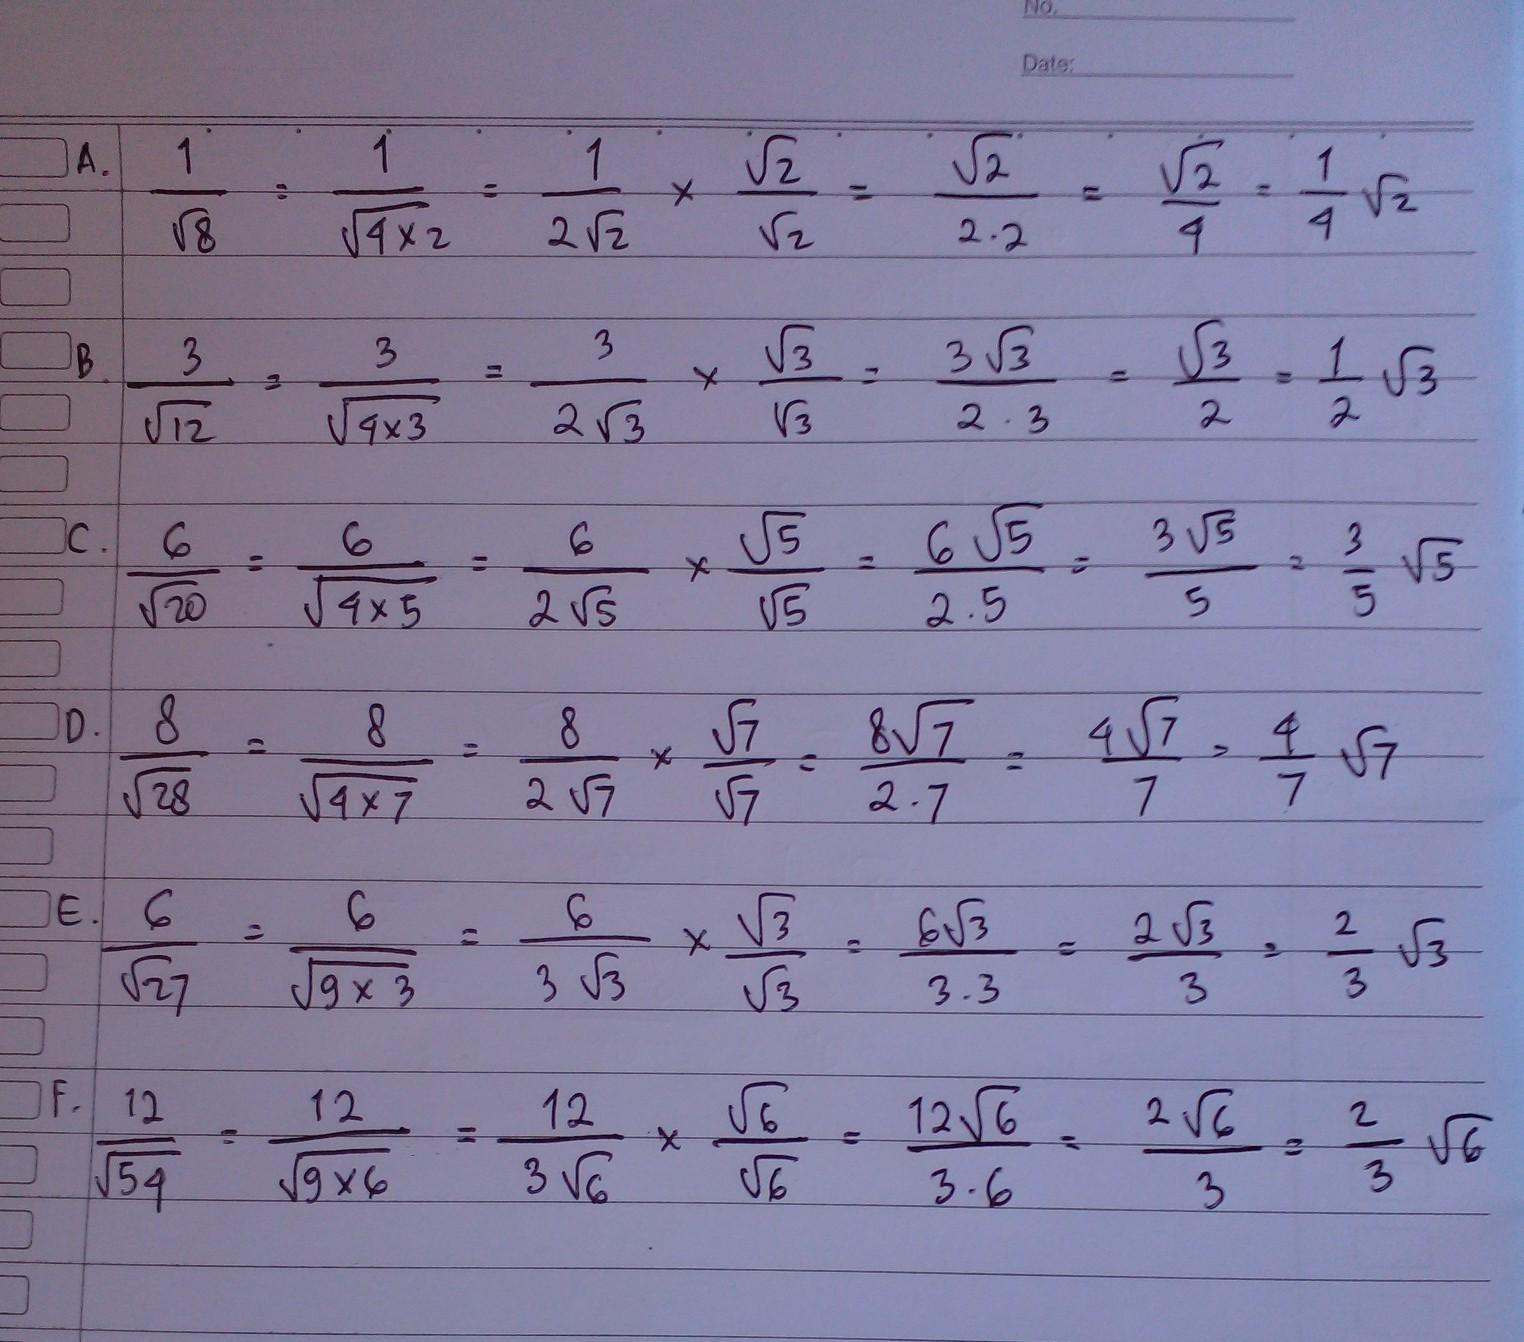 No.
Date:
A. 1/√8 = 1/√4×2 = 1/2√2 × √2/√2 = √2/2.2 = √2/4 = 1/4 √2
B. 3/√12 = 3/√4×3 = 3/2√3 × √3/√3 = 3√3/2.3 = √3/2 = 1/2 √3
C. 6/√20 = 6/√4×5 = 6/2√5 × √5/√5 = 6√5/2.5 = 3√5/5 = 3/5 √5
D. 8/√28 = 8/√4×7 = 8/2√7 × √7/√7 = 8√7/2.7 = 4√7/7 = 4/7 √7
E. 6/√27 = 6/√9×3 = 6/3√3 × √3/√3 = 6√3/3.3 = 2√3/3 = 2/3 √3
F. 12/√54 = 12/√9×6 = 12/3√6 × √6/√6 = 12√6/3.6 = 2√6/3 = 2/3 √6